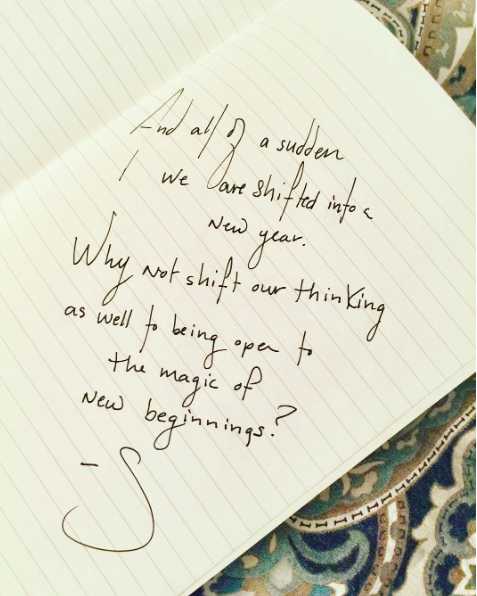 And all of a sudden
we are shifted into a
New year.
Why Not shift our thinking
as well to being open to
the magic of
New beginnings?
-S